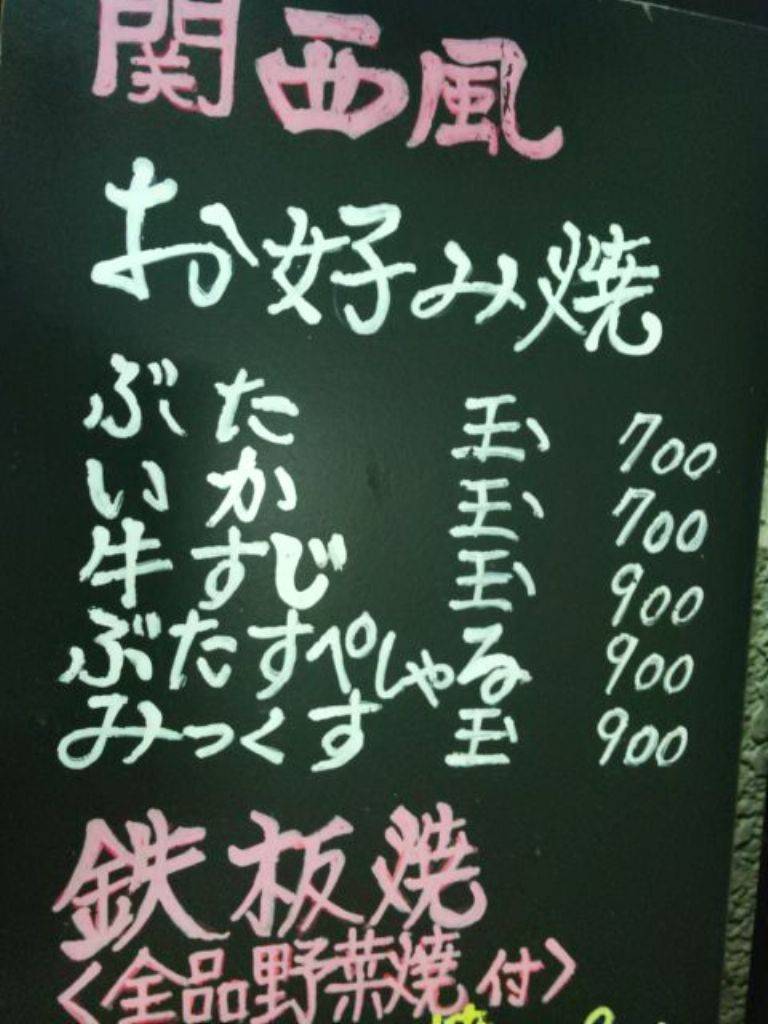 関西風
お好み焼
ぶた 玉 700
いか 玉 700
牛すじ 玉 900
ぶたすぺしゃる 900
みっくす 玉 900
鉄板焼
〈全品野菜焼付〉